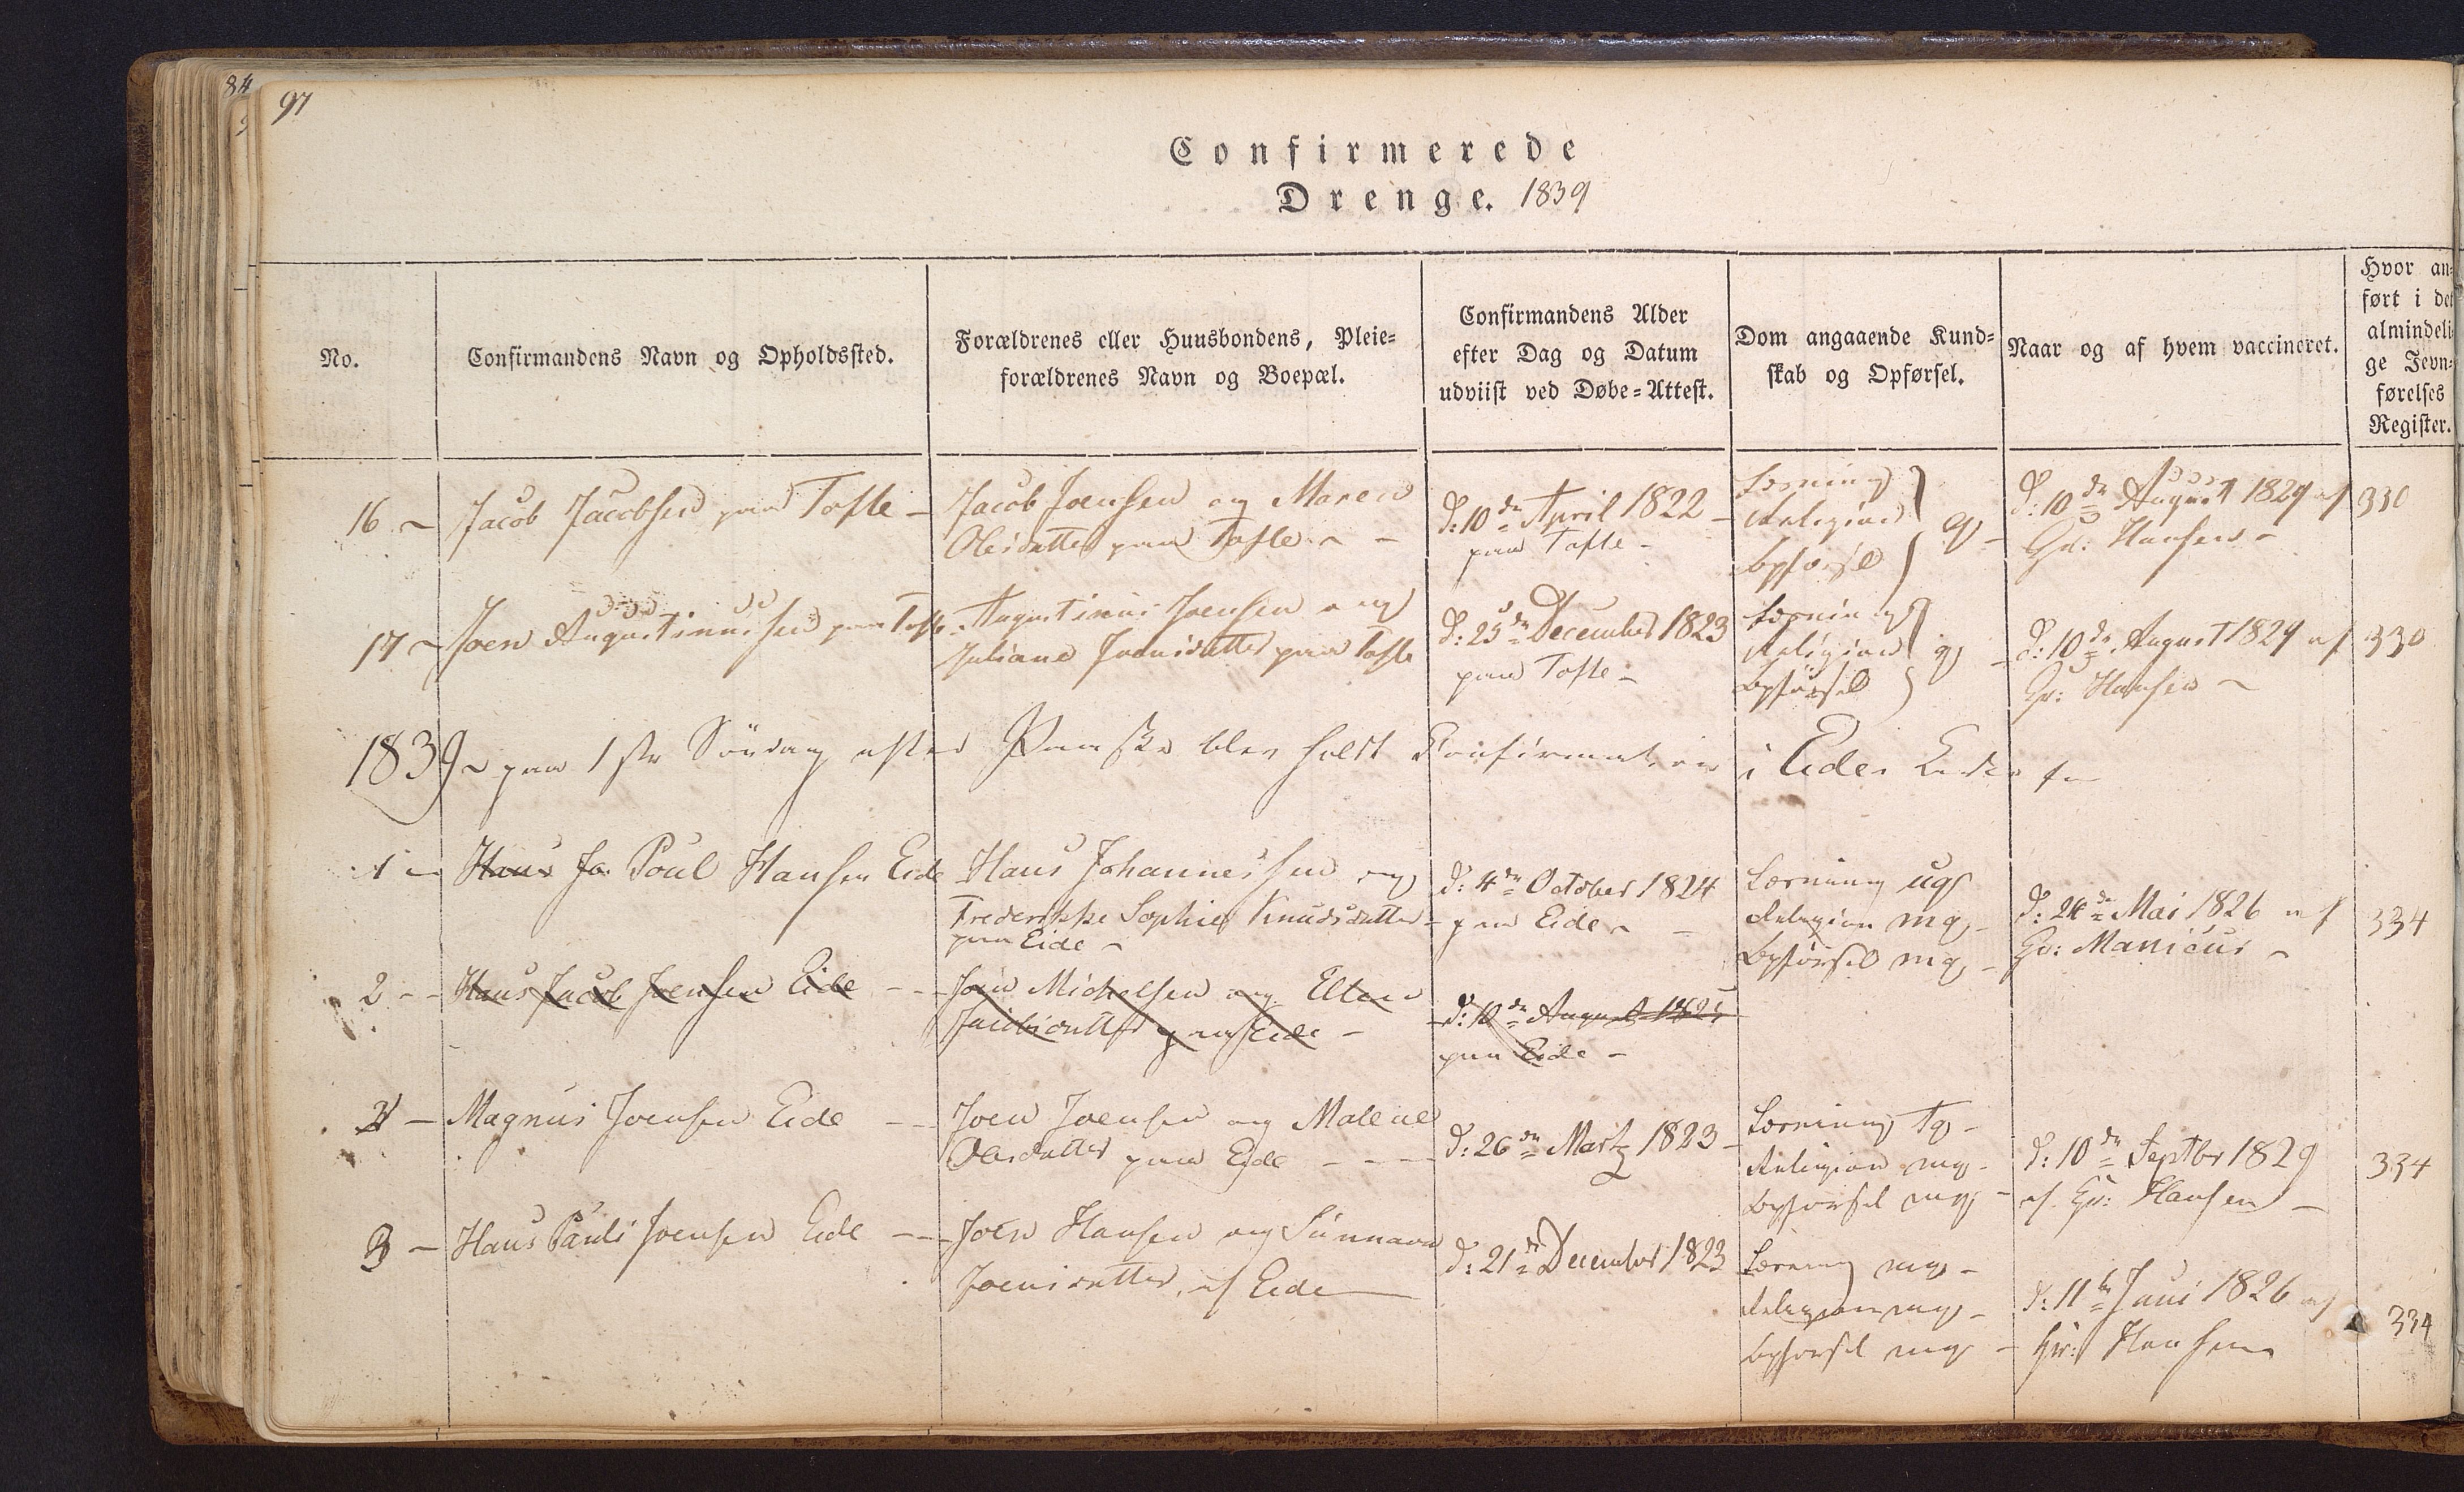 84
97
Confirmerede
Drenge. 1839
No.
Confirmandens Navn og Opholdssted.
Forældrenes eller Huusbondens, Pleie-
forældrenes Navn og Boepæl.
Confirmandens Alder
efter Dag og Datum
udviist ved Døbe-Attest.
Dom angaaende Kund-
skab og Opførsel.
Naar og af hvem vaccineret.
Hvor an-
ført i det
almindeli-
ge Jevn-
førelses
Register.
16 Jacob Jacobsen paa Tofte
Jacob Joensen og Maren
Olesdatter paa Tofte
d: 10de April 1822
paa Tofte
Læsning
Religion
Opførsel
g
d: 10de August 1829 af
Gr: Hansen
330
17 Joen Augustinussen paa Tofte
Augustinus Joensen og
Juliane Joensdatter paa Tofte
d: 25de December 1823
paa Tofte
Læsning
Religion
Opførsel
g
d: 10de August 1829 af
Gr: Hansen
330
1839 paa 1ste Søndag efter Paaske blev holdt Confirmation i Eide Kirke for
1 Hans Jo. Poul Hansen Eide
Hans Johannessen og
Frederikke Sophie Knudsdatter
paa Eide
d: 4de October 1824
paa Eide
Læsning ug
Religion mg
Opførsel mg
d: 24de Mai 1826 af
Gr: Manicus
334
2 Hans Jacob Joensen Eide
Joen Michelsen og Elten
Jacobsdatter paa Eide
d: 10de August 1825
paa Eide
2 Magnus Joensen Eide
Joen Joensen og Malene
Olesdatter paa Ejde
d: 26de Martz 1823
Læsning Tg
Religion mg
Opførsel mg
d: 10de Septbr 1829
af Gr: Hansen
334
3 Hans Pauli Joensen Eide
Joen Hansen og Sunnava
Joensdatter af Eide
d: 21de December 1823
Læsning mg
Religion mg
Opførsel mg
d: 11te Juni 1826 af
Hr: Hansen
334